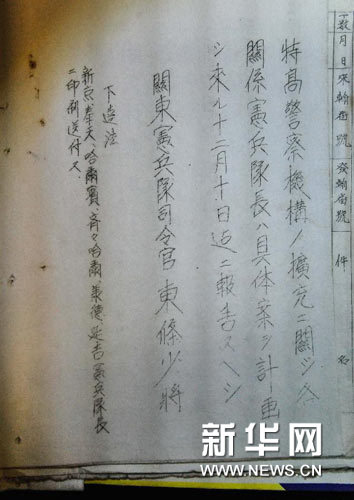 月 日 來翰番號 發翰番號 件 名
特高警察機構ノ擴充ニ關シ各
關係憲兵隊長ハ具体案ヲ計画
シ來ル十二月十日迄ニ報告スヘシ
關東憲兵隊司令官東條少將
下達法
新京、奉天、哈爾賓、斉々哈爾、承德、延吉憲兵隊長
ニ印刷送付ス、
新华网
WWW.NEWS.CN